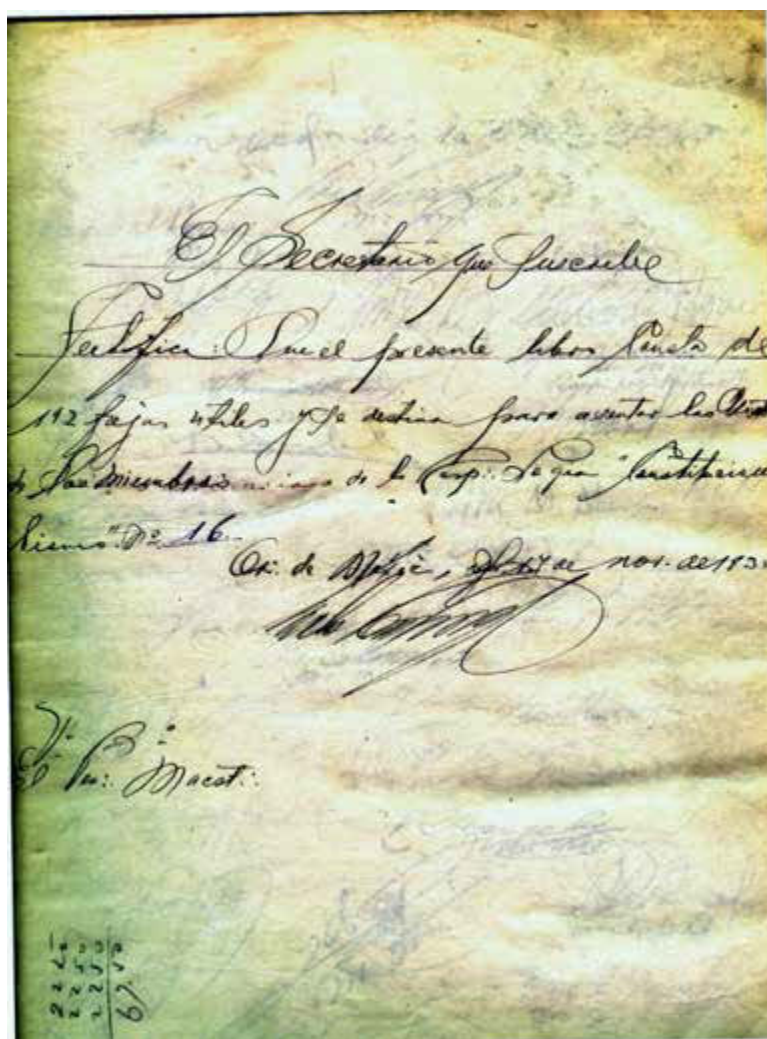 El Secretario que Suscribe
Certifica: Que el presente libro Consta de
112 fojas utiles y se destina para asentar las
de los miembros de la Resp: Logia "Constituciona
lismo" Nº 16.
Or: de 17 de nov. de 193
Vº Bº
El Ven: Maest:.
2250
2250
2250
6750